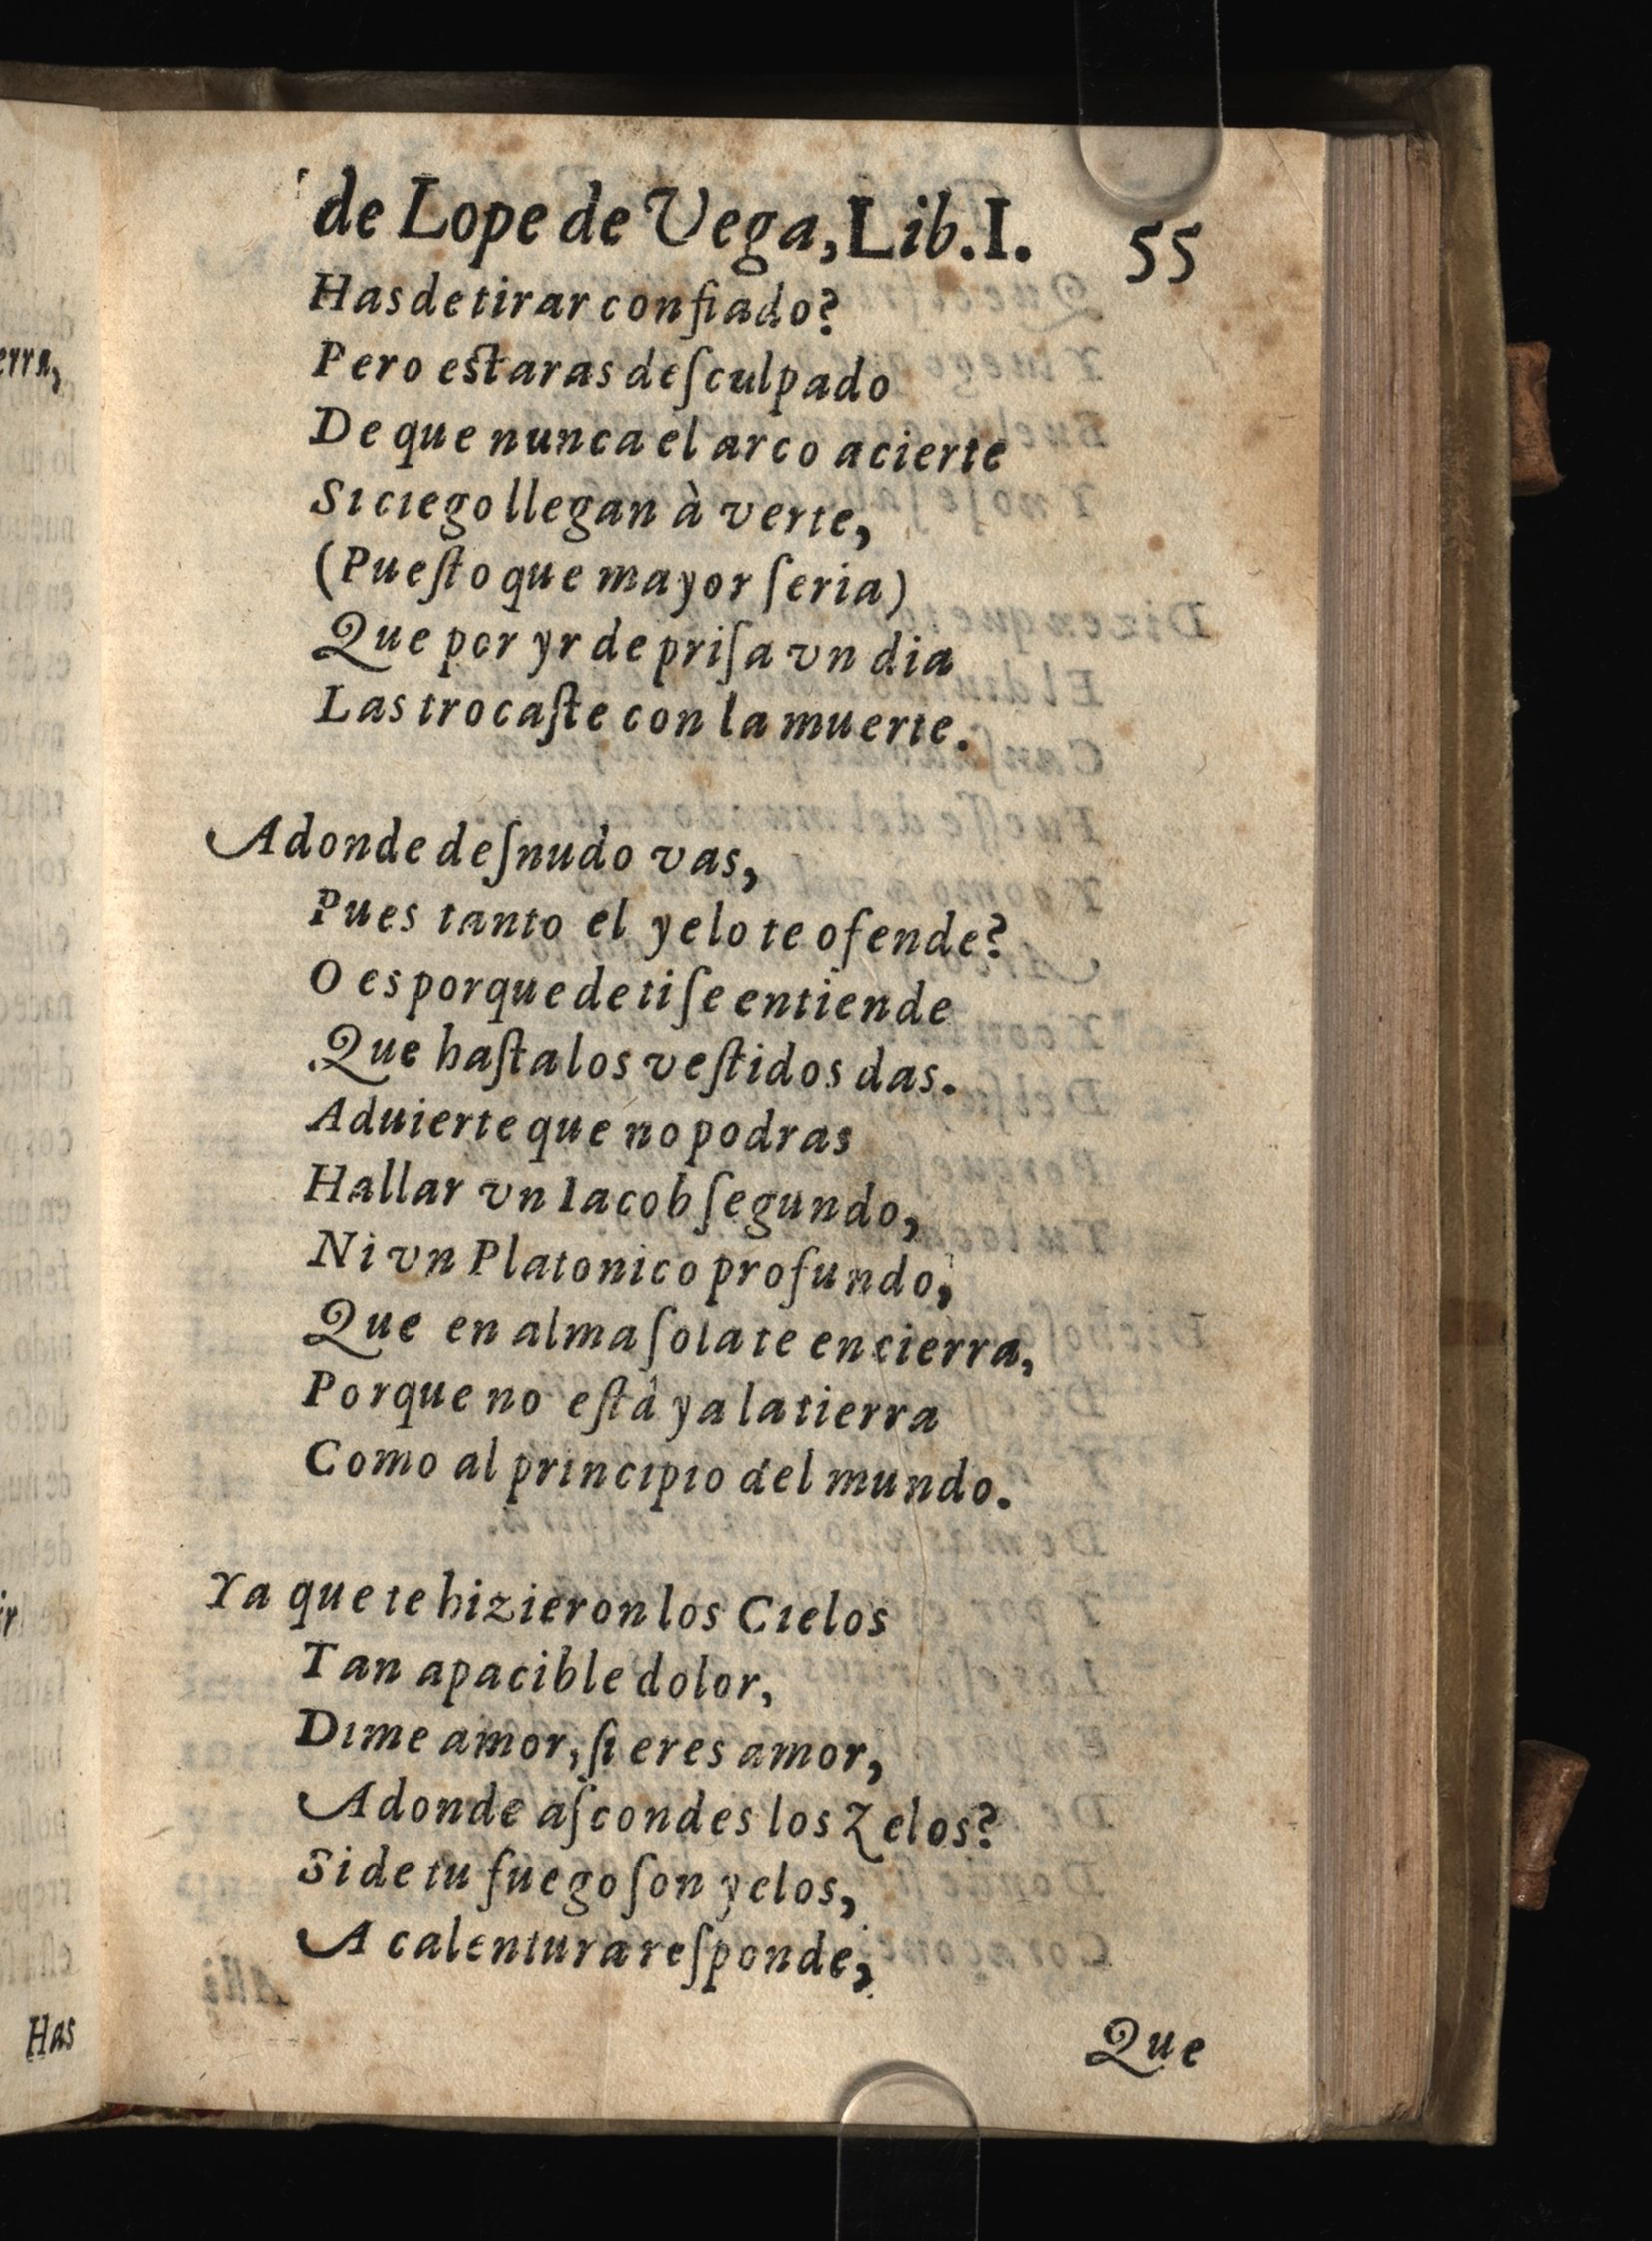 de Lope de Vega, Lib. I. 55
Has de tirar confiado?
Pero estaras deſculpado
De que nunca el arco acierte
Si ciego llegan à verte,
(Pueſto que mayor ſeria)
Que por yr de priſa vn dia
Las trocaſte con la muerte.
Adonde deſnudo vas,
Pues tanto el yelo te ofende?
O es porque de ti ſe entiende
Que haſta los veſtidos das.
Aduierte que no podras
Hallar vn Iacob ſegundo,
Ni vn Platonico profundo,
Que en alma ſola te encierra,
Porque no eſtà ya la tierra
Como al principio del mundo.
Ya que te hizieron los Cielos
Tan apacible dolor,
Dime amor, ſi eres amor,
Adonde aſcondes los Zelos?
Si de tu fuego ſon yelos,
A calentura reſponde,
Que
erra,
Has